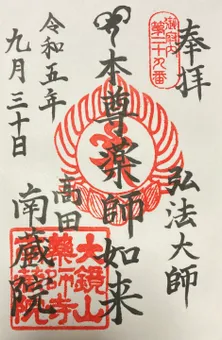 奉拝
弘法大師
御府内
第二十九番
本尊薬師如来
高田
南蔵院
令和五年
九月三十日
大鏡山
薬師寺
南蔵院